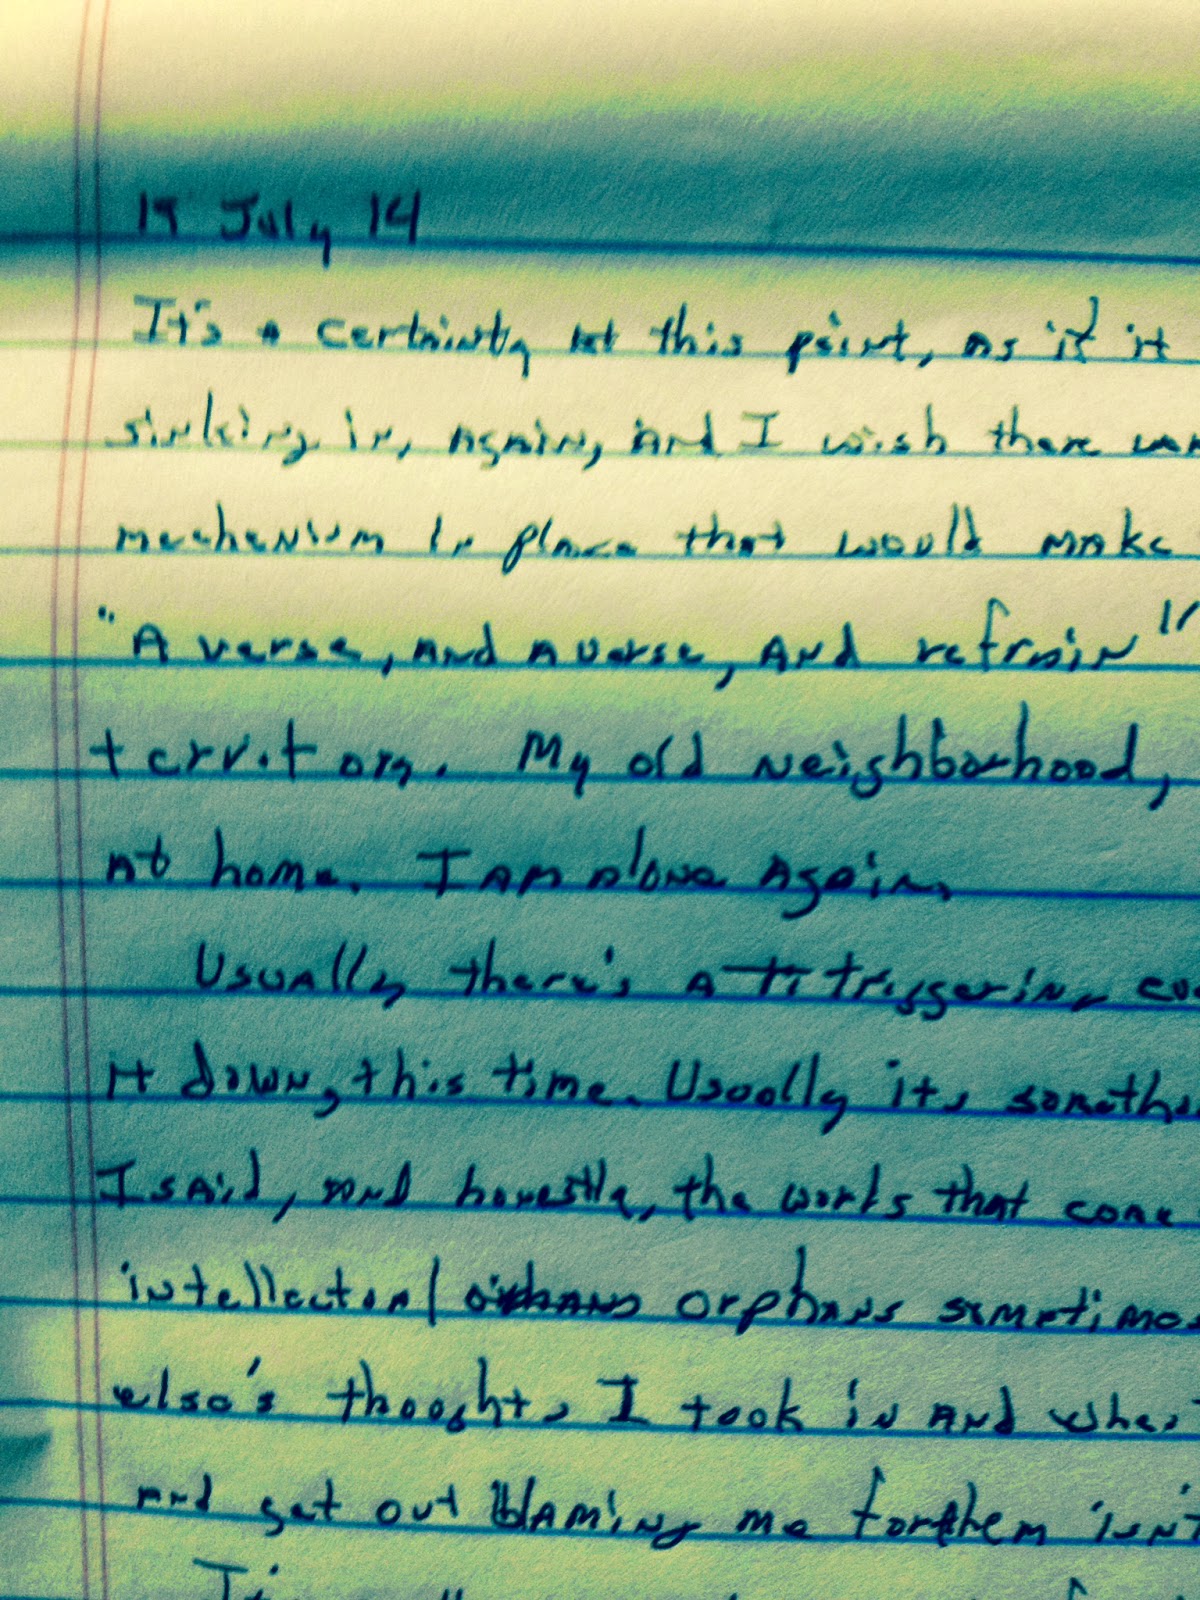 19 July 14
It's a certainty at this point, as if it
sinking in, again, and I wish there
mechenism in place that would make
"A verse, and a verse, and refrain"
territory. My old neighborhood,
at home. I am alone again,
Usually there's a triggering
it down, this time. Usually its
I said, and honestly, the works that come
intellectual orphans sometimes
else's thoughts I took in and
and get out blaming me for them isn't